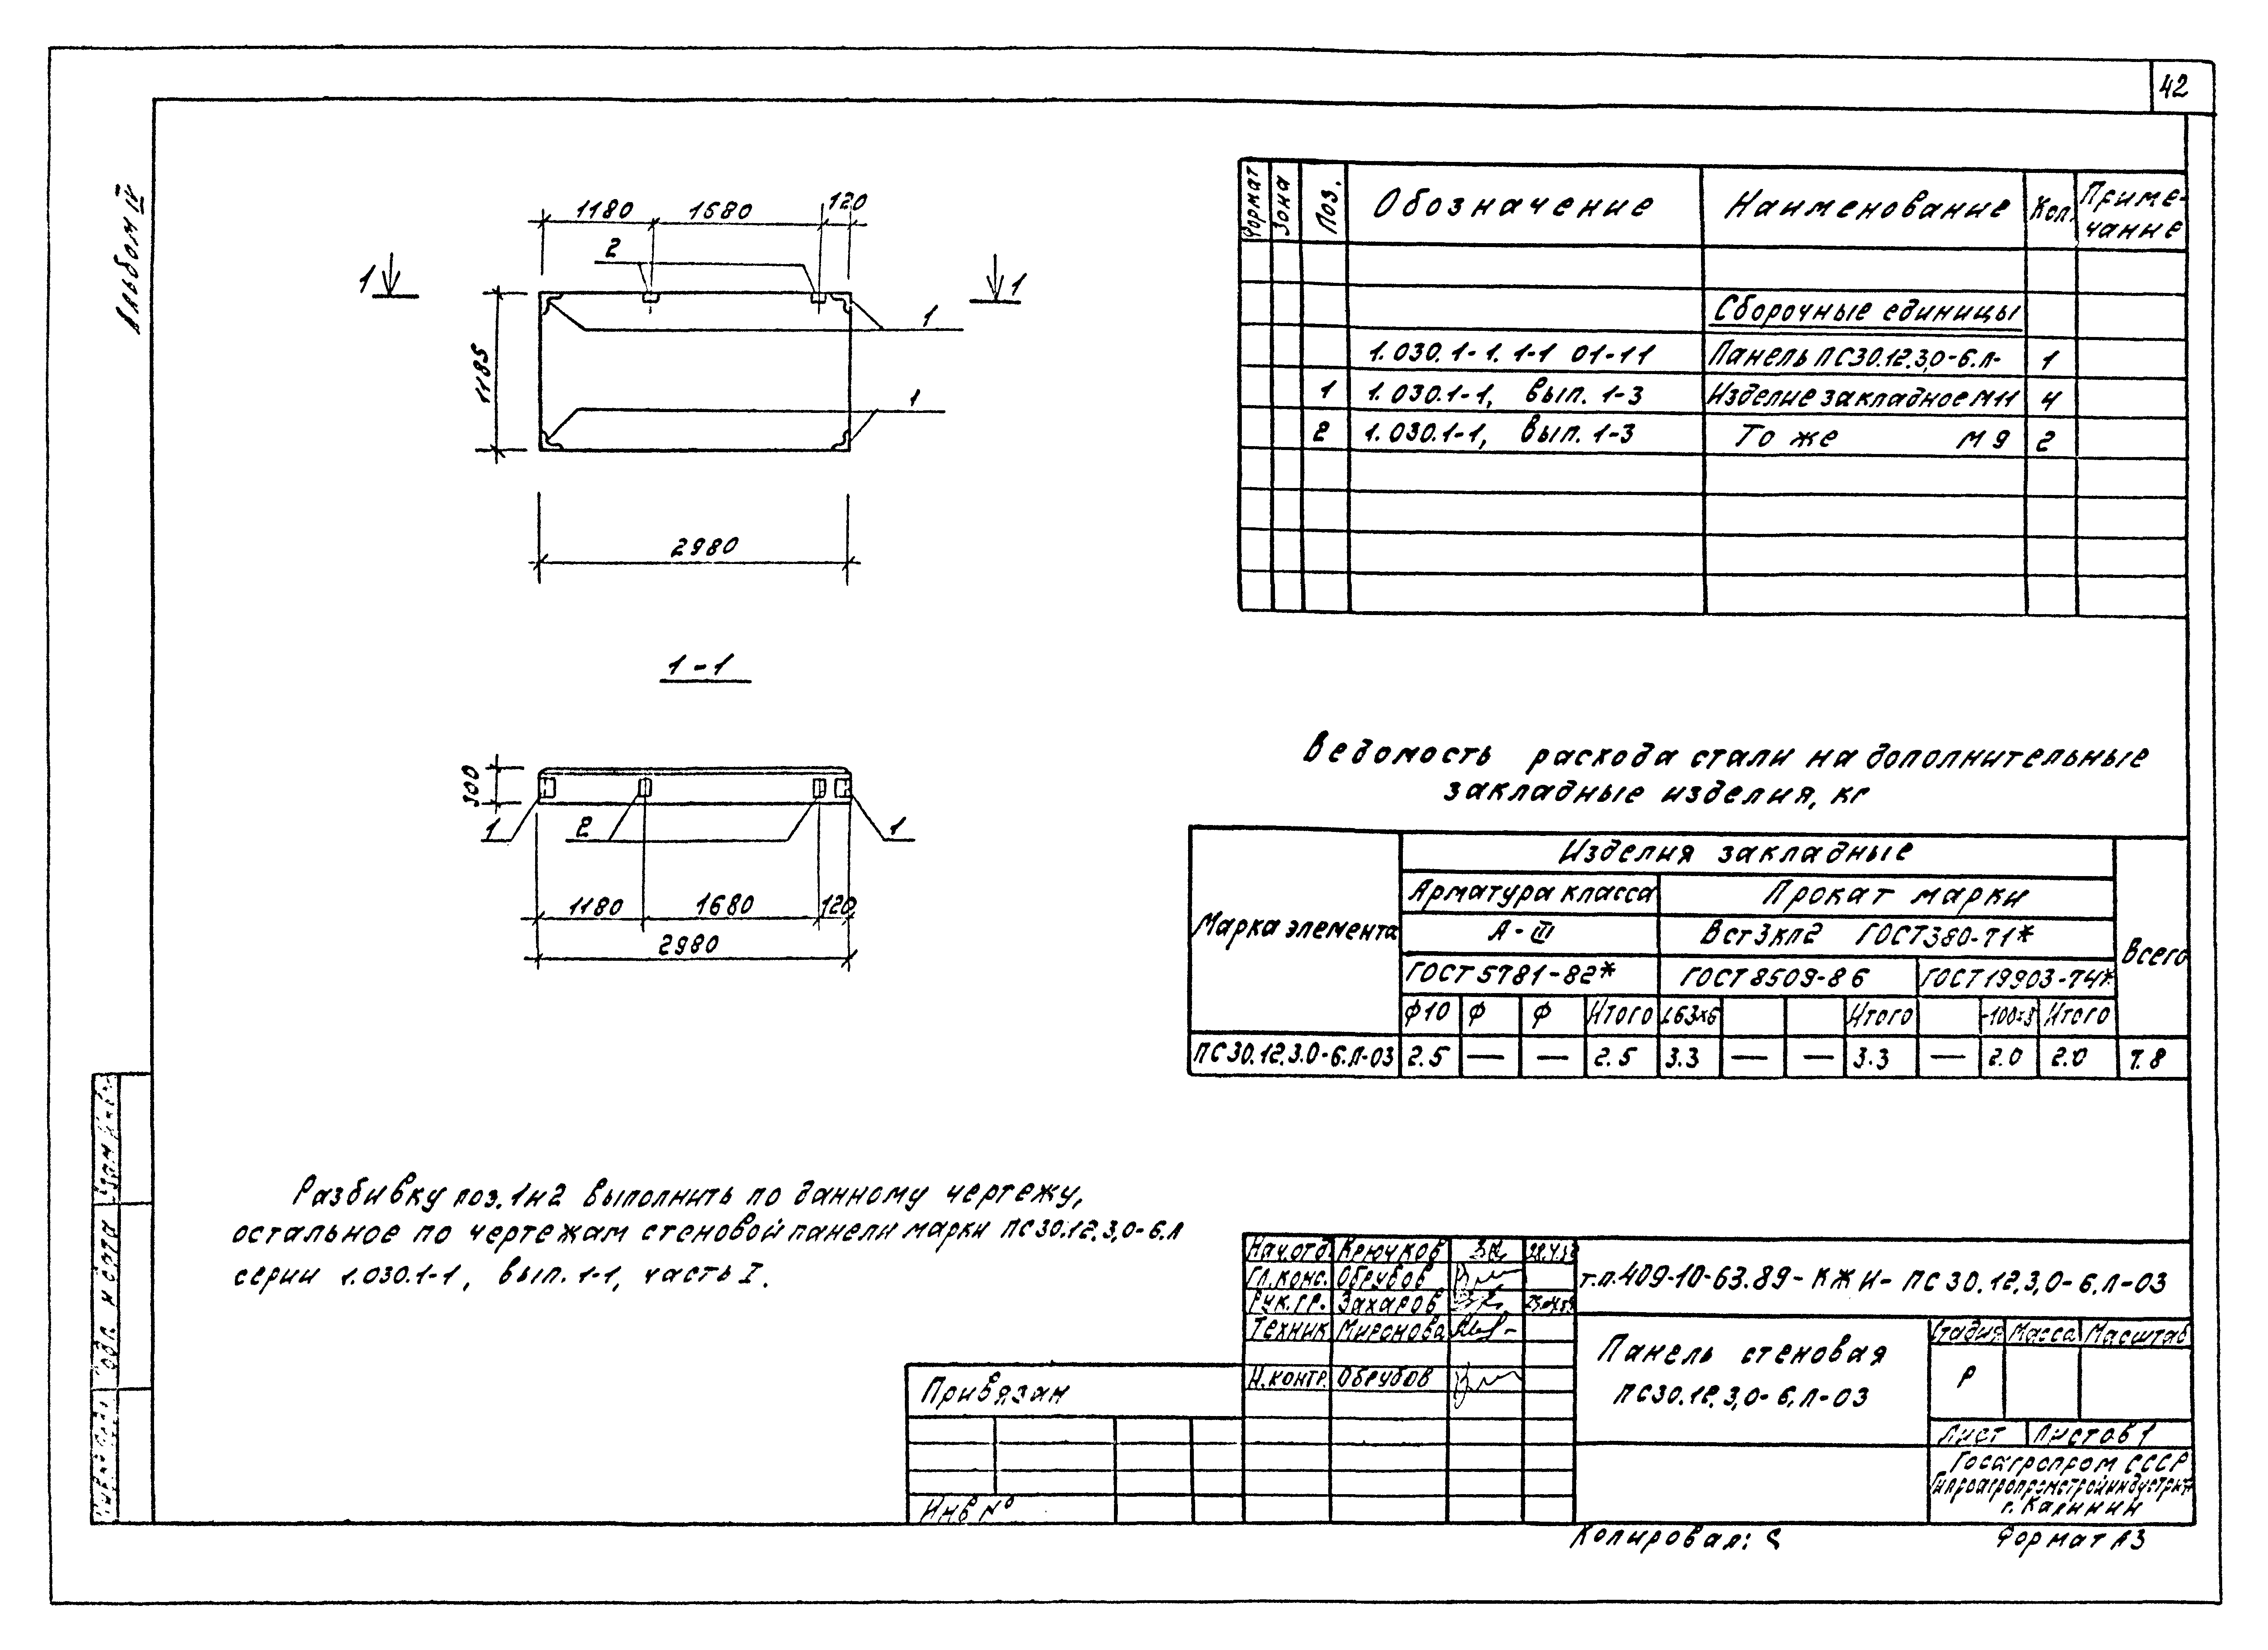 42
Альбом IV
1180 1680 120
2
1 1
1185
1
1
2980
1-1
300
1 2 1
1180 1680 120
2980
Формат Зона Поз. Обозначение Наименование Кол. Приме-
чание
Сборочные единицы
1.030.1-1.1-1 01-11 Панель ПС30.12.3,0-6.Л- 1
1 1.030.1-1, вып. 1-3 Изделие закладное М11 4
2 1.030.1-1, вып. 1-3 То же М9 2
Ведомость расхода стали на дополнительные
закладные изделия, кг
Марка элемента Изделия закладные Всего
Арматура класса Прокат марки
А-III Вст3кп2 ГОСТ380-71*
ГОСТ 5781-82* ГОСТ 8509-86 ГОСТ19903-74*
ф10 ф ф Итого L63×6 Итого -100×8 Итого
ПС30.12.3.0-6.Л-03 2.5 — — 2.5 3.3 — — 3.3 — 2.0 2.0 7.8
Разбивку поз.1и2 выполнить по данному чертежу,
остальное по чертежам стеновой панели марки ПС30.12.3,0-6.Л
серии 1.030.1-1, вып. 1-1, часть I.
Нач.отд. Крючков
Гл.конс. Обрубов
Рук.гр. Захаров
Техник Миронова
Н.контр. Обрубов
т.п.409-10-63.89-КЖИ-ПС30.12.3,0-6.Л-03
Панель стеновая
ПС30.12.3,0-6.Л-03
Стадия Масса Масштаб
Р
Лист Листов 1
Госагропром СССР
Гипроагропромстройиндустрия
г. Калинин
Привязан
Инв №
Копировал: Формат А3